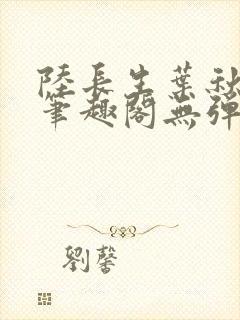 陸長生葉秋
筆趣閣無彈
劉馨